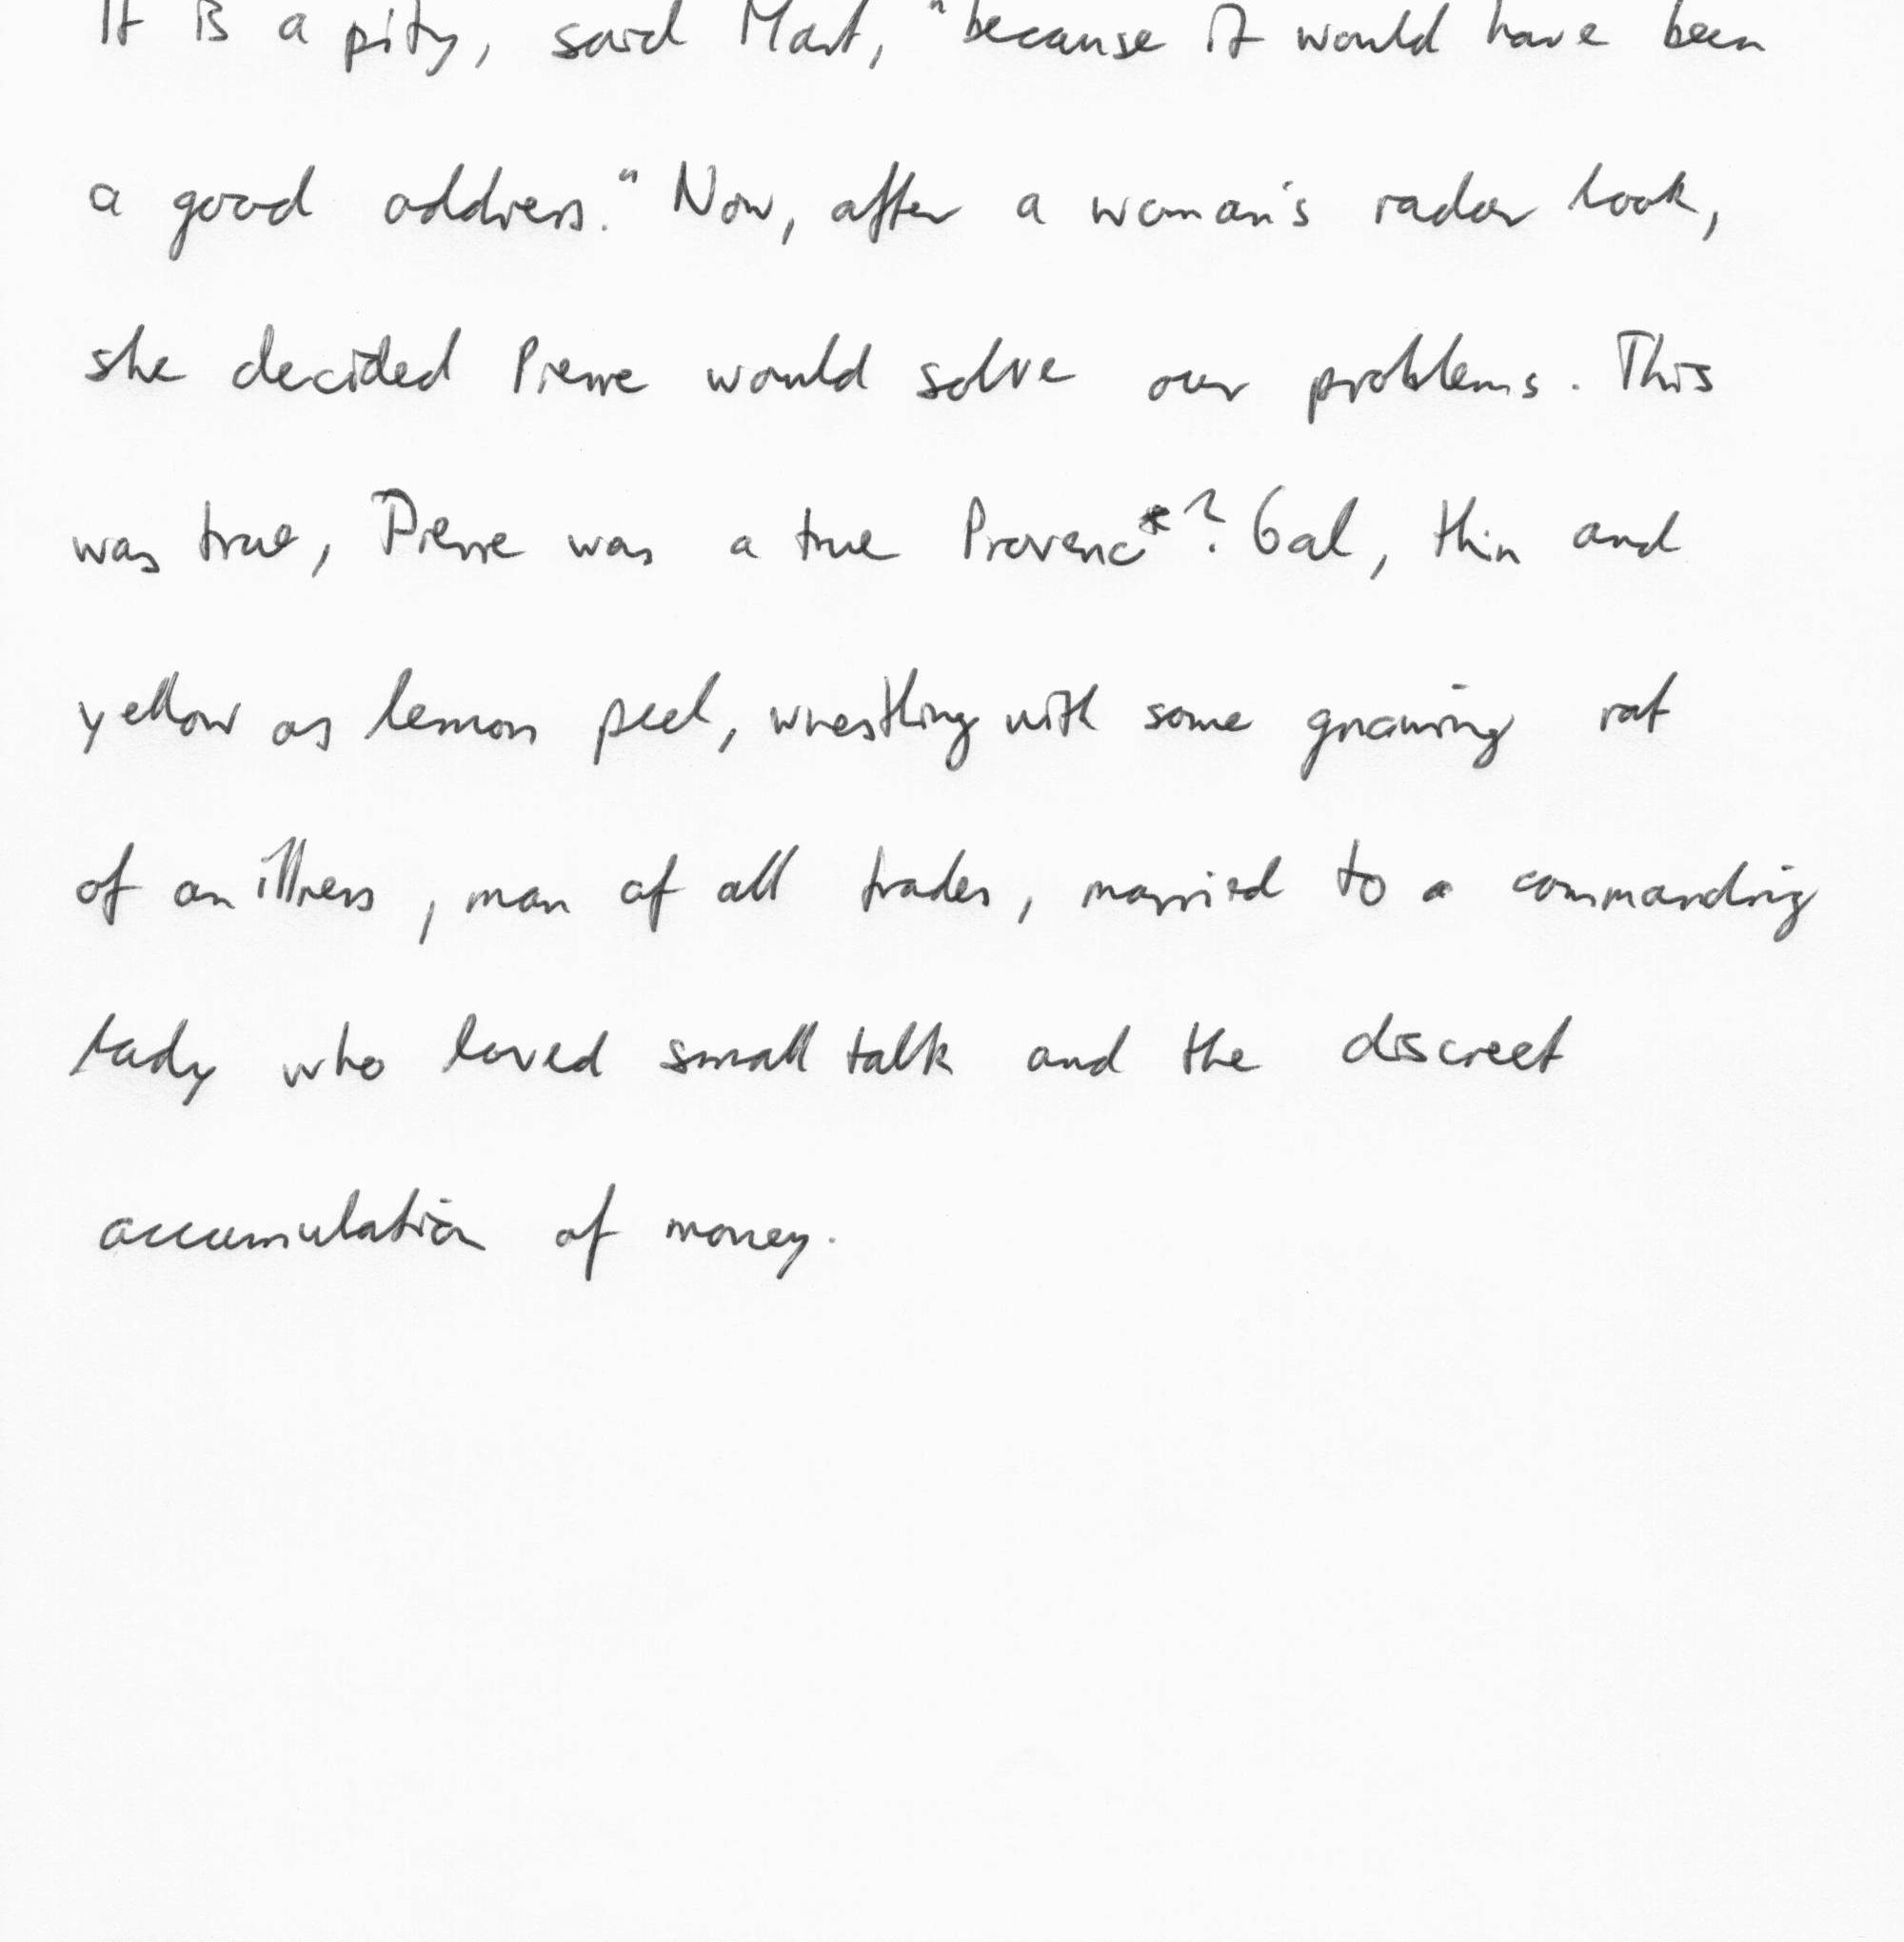 It is a pity, said Mart, "because it would have been
a good address." Now, after a woman's radar look,
she decided Pierre would solve our problems. This
was true, Pierre was a true Provenc*? Gal, thin and
yellow as lemon peel, wrestling with some gnawing rat
of an illness, man of all trades, married to a commanding
lady who loved small talk and the discreet
accumulation of money.